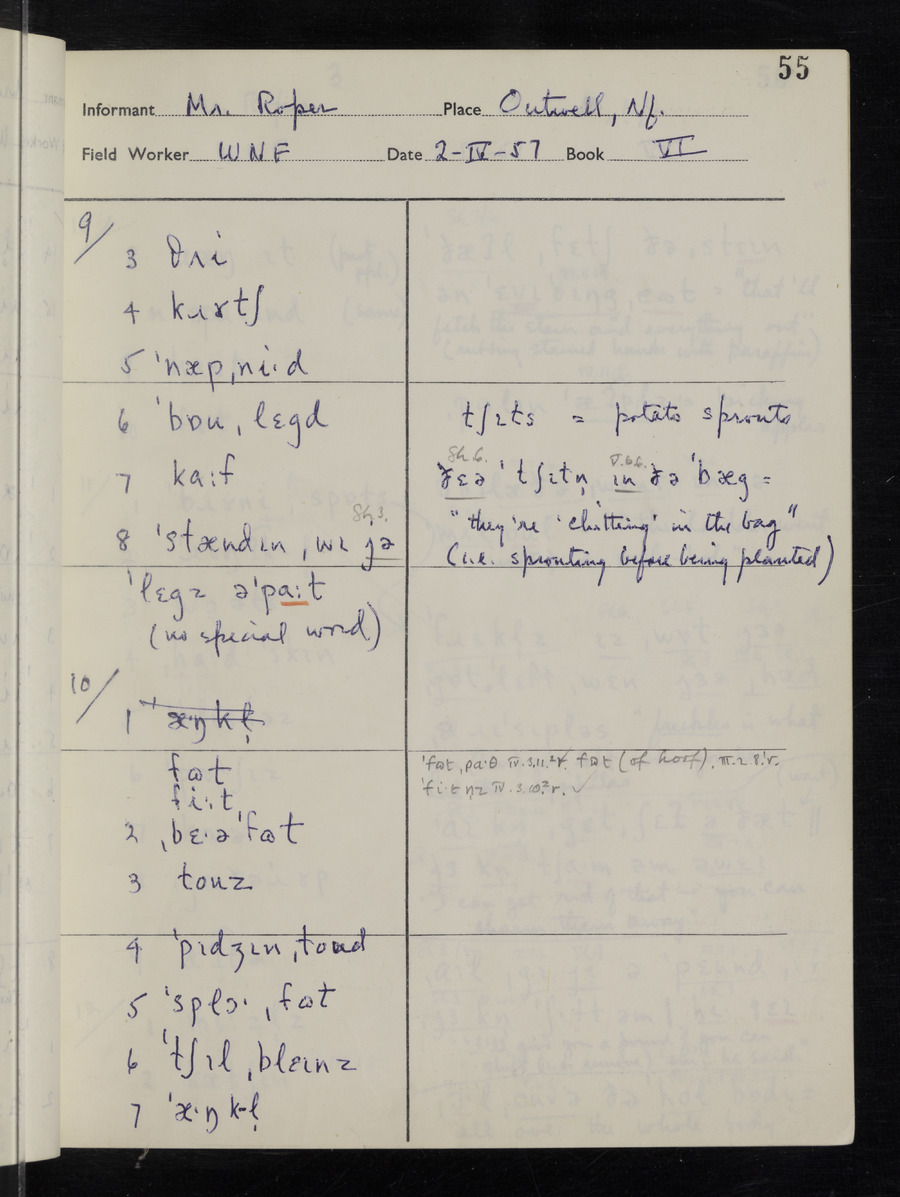 55
Informant Mr. Roper Place Outwell, Nf.
Field Worker WNF Date 2-IV-57 Book VI
9/
3 θɹi
4 kɹɤtʃ
5 ˈnæpˌniːd
6 ˈbɒuˌlɛgd
7 kaːf
Sh 3.
8 ˈstændɪnˌwɪ jə
ˈlɛgz əˈpaːt
(no special word)
10/
1 ˈæŋkɫ̩
fɷt
fiːt
2 ˌbɛˑəˈfɷt
3 touz
4 ˈpɪdʒɪnˌtoud
5 ˈsplɔˑˌfɷt
6 ˈtʃɪlˌblɛɪnz
7 ˈæˑŋkɫ̩
tʃɪts = potato sprouts
Sh. 6. V.6.6.
ðɛə ˈtʃɪtn̩ ɪn ðə ˈbæg =
"they're 'chitting' in the bag"
(i.e. sprouting before being planted)
ˈfɷtˌpaˑθ IV.3.11. fɷt (of hoof), III.2.8.